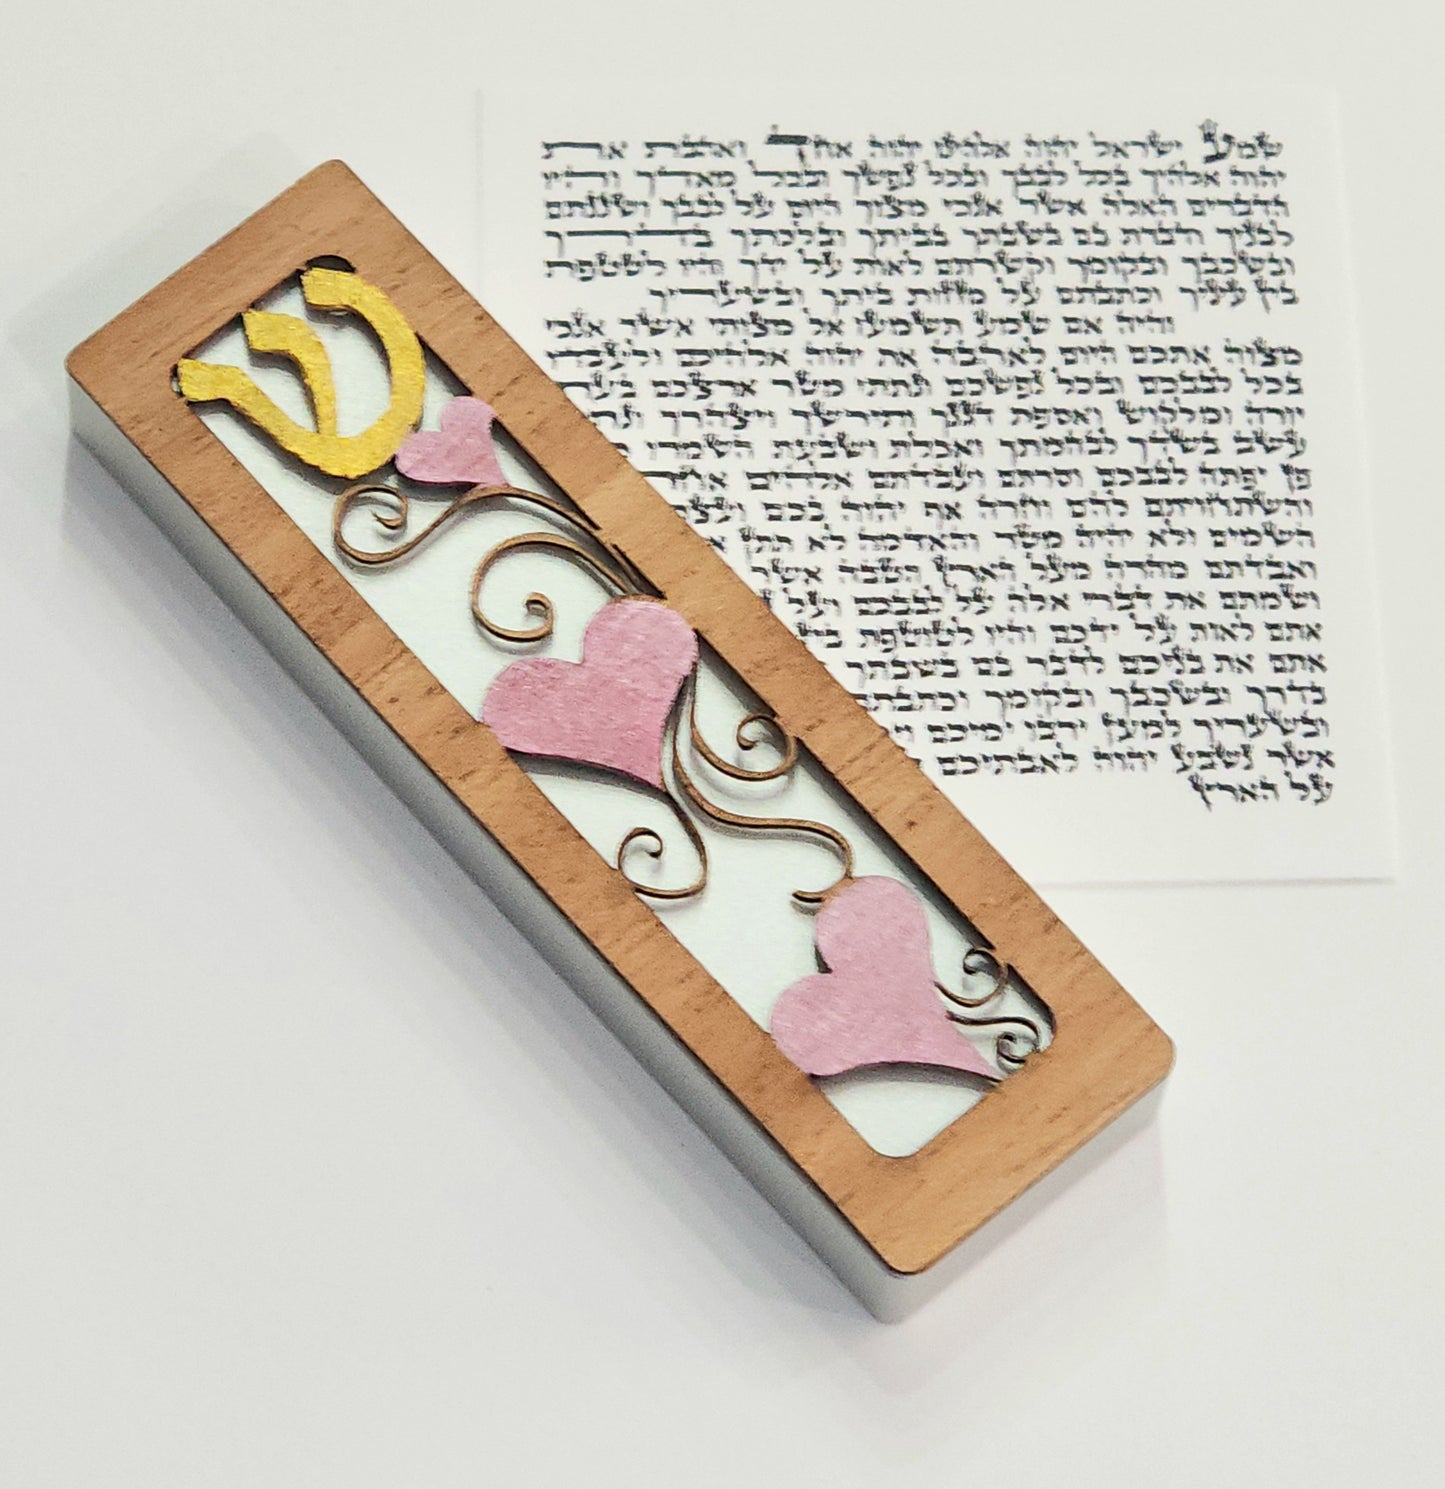 ש
שמע ישראל יהוה אלהינו יהוה אחד ואהבת את
יהוה אלהיך בכל לבבך ובכל נפשך ובכל מאדך והיו
הדברים האלה אשר אנכי מצוך היום על לבבך ושננתם
לבניך ודברת בם בשבתך בביתך ובלכתך בדרך
ובשכבך ובקומך וקשרתם לאות על ידך והיו לטטפת
בין עיניך וכתבתם על מזזות ביתך ובשעריך
והיה אם שמע תשמעו אל מצותי אשר אנכי
מצוה אתכם היום לאהבה את יהוה אלהיכם ולעבדו
בכל לבבכם ובכל נפשכם ונתתי מטר ארצכם בעת
יורה ומלקוש ואספת דגנך ותירשך ויצהרך
עשב בשדך לבהמתך ואכלת ושבעת השמרו
פן יפתה לבבכם וסרתם ועבדתם אלהים
והשתחויתם להם וחרה אף יהוה בכם ועצר
השמים ולא יהיה מטר והאדמה לא תתן
ואבדתם מהרה מעל הארץ הטבה אשר
ושמתם את דברי אלה על לבבכם ועל
אתם לאות על ידכם והיו לטוטפת
אתם את בניכם לדבר בם בשבתך
בדרך ובשכבך ובקומך וכתבתם
ובשעריך למען ירבו ימיכם
אשר נשבע יהוה לאבתיכם
על הארץ